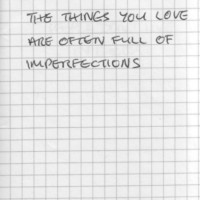 THE THINGS YOU LOVE
ARE OFTEN FULL OF
IMPERFECTIONS